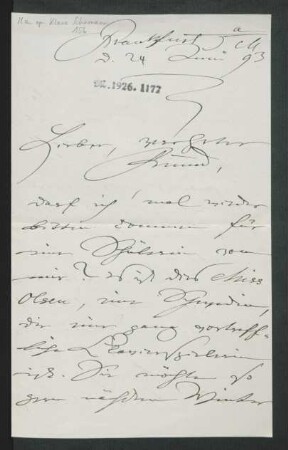 Mus. ep. Klara Schumann
156
Frankfurt a/M
d. 24 Juni 93
acc. 1926. 1177
Lieber, verehrter
Freund,
darf ich 'mal wieder
bitten kommen für
eine Schülerin von
mir? es ist dies Miss
Olsen, eine Schwedin,
die eine ganz vortreff-
liche Klavierspielerin
ist. Sie möchte so
gern nächsten Winter